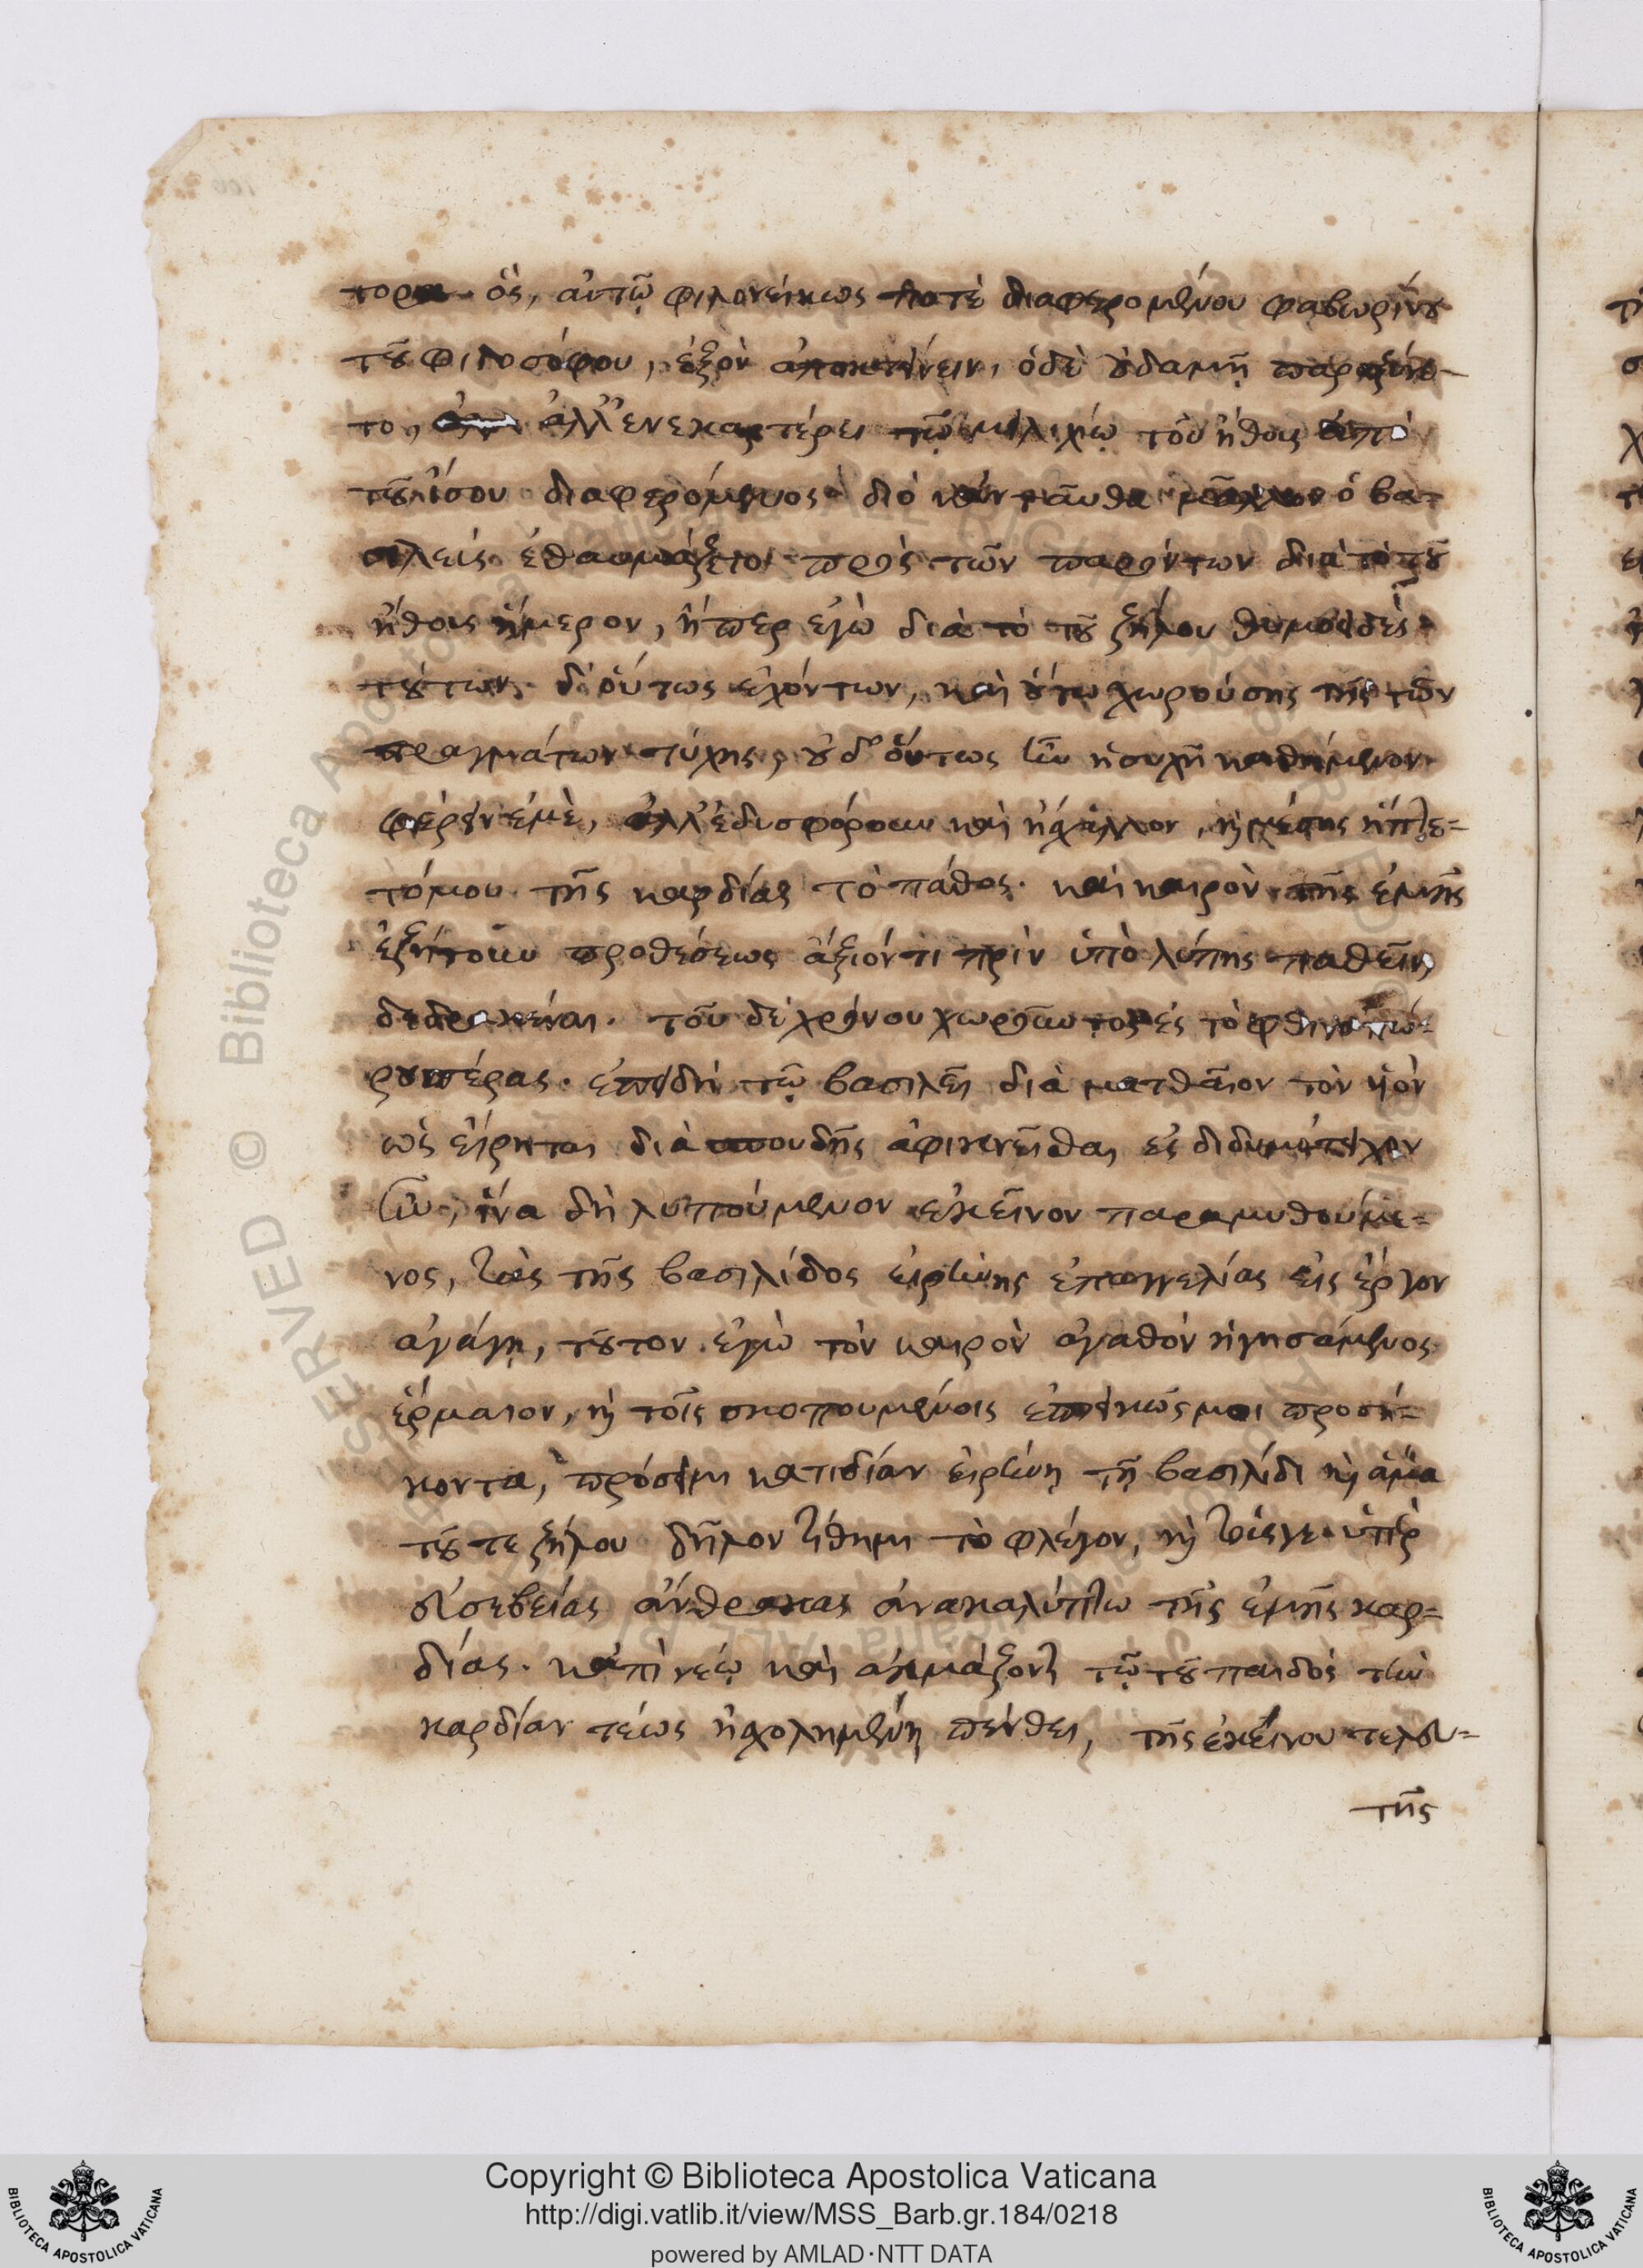 τορα. ὃς, αὐτῷ φιλονείκως ποτὲ διαφερομένου φαβωρίνου
τοῦ φιλοσόφου, ἐξὸν ἀποκτείνειν, ὁ δὲ οὐδαμῇ παρωξύνε-
το, ἀλλ' ἐνεκαρτέρει τῷ μειλιχίῳ τοῦ ἤθους ἀπὸ
τοῦ ἴσου διαφερόμενος· διὸ κἀνταῦθα μᾶλλον ὁ βα-
σιλεὺς ἐθαυμάζετο πρὸς τῶν παρόντων διὰ τὸ τοῦ
ἤθους ἥμερον, ἤπερ ἐγὼ διὰ τὸ τοῦ ζήλου θυμοειδές·
τούτων δ' οὕτως ἐχόντων, καὶ οὕτω χωρούσης τῆς τῶν
πραγμάτων τύχης, οὐδ' οὕτως ἦν ἡσυχῇ καθήμενον
φέρειν ἐμὲ, ἀλλ' ἐδυσφόρουν καὶ ἤσχαλλον, καὶ μέσης ἥπτε=
τό μου τῆς καρδίας τὸ πάθος· καὶ καιρὸν τῆς ἐμῆς
ἐζήτουν προθέσεως ἄξιόν τι πρὶν ὑπὸ λύπης παθεῖν
δεδρακέναι. τοῦ δὲ χρόνου χωροῦντος ἐς τὸ φθινοπώ=
ρου πέρας. ἐπειδὴ τῷ βασιλεῖ διὰ ματθαῖον τὸν υἱὸν
ὡς εἴρηται διὰ σπουδῆς ἀφικνεῖσθαι ἐς διδυμότειχον
ἦν, ἵνα δὴ λυπούμενον ἐκεῖνον παραμυθούμε=
νος, τὰς τῆς βασιλίδος εἰρήνης ἐπαγγελίας εἰς ἔργον
ἀγάγῃ, τοῦτον ἐγὼ τὸν καιρὸν ἀγαθὸν ἡγησάμενος
ἕρμαιον, καὶ τοῖς σκοπουμένοις ἐπιεικῶς μοι προσή=
κοντα, πρόσειμι κατιδίαν εἰρήνῃ τῇ βασιλίδι καὶ ἅμα
τοῦ τε ζήλου δῆλον τίθημι τὸ φλέγον, καὶ τούς γε ὑπὲρ
εὐσεβείας ἄνθρακας ἀνακαλύπτω τῆς ἐμῆς καρ=
δίας. κἀπὶ νέῳ καὶ ἀκμάζοντι τῷ τοῦ παιδὸς τὴν
καρδίαν τέως ἠσχολημένη πένθει, τῆς ἐκείνου τελευ=
τῆς
Copyright © Biblioteca Apostolica Vaticana
http://digi.vatlib.it/view/MSS_Barb.gr.184/0218
powered by AMLAD·NTT DATA